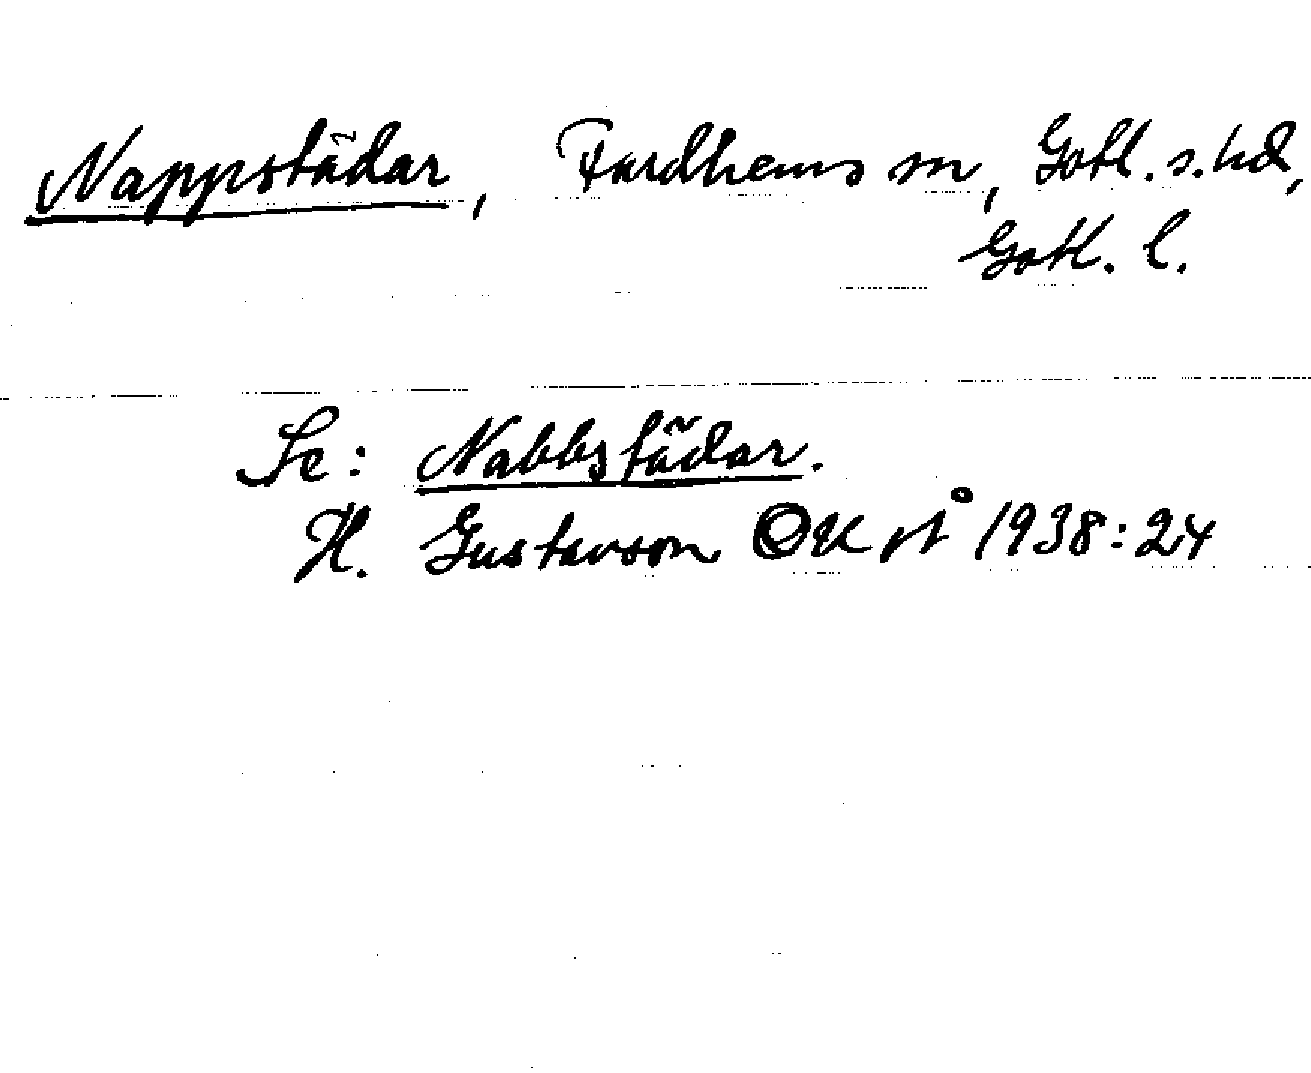 Nappstädar, Fardhems sn, Gotl. s. hd,
Gotl. l.
Se: Nabbstädar.
H. Gustavson OUÅ 1938:24